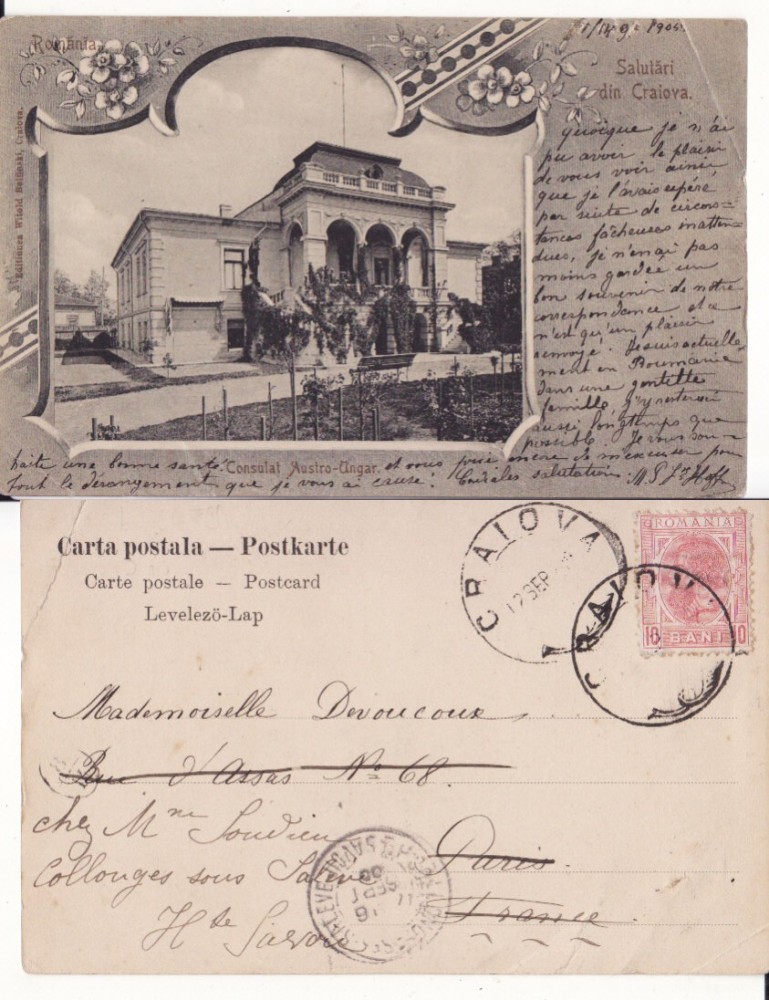 România
1904
Salutări
din Craiova.
Editiunea Witold Reslinski, Craiova.
quoique je n'ai
pu avoir le plaisir
de vous voir ainsi
que je l'avais espéré
par suite de circons=
tances fâcheuses inatten=
dues, je n'en ai pas
moins gardée un
bon souvenir de notre
correspondance et ce
n'est qu'un plaisir
renvoyé. Je suis actuelle
ment en Roumanie
dans une gentille
famille, j'y resterai
aussi longtemps que
possible. Je vous sou=
haite une bonne santé. et vous prie encore de m'excuser pour
Consulat Austro-Ungar.
tout le dérangement que je vous ai causé! salutations
Carta postala — Postkarte
Carte postale — Postcard
Levelező-Lap
CRAIOVA
12 SEP
ROMANIA
10 BANI 10
CRAIOVA
Mademoiselle Devoucoux
Rue d'Assas No 68.
chez Mme
Collonges sous Salève
Paris
France
Hte Savoie
SEPT